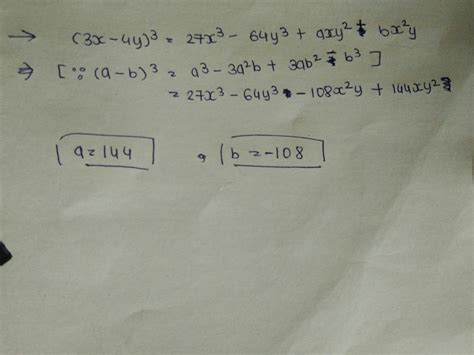 → (3x-4y)³ = 27x³ - 64y³ + axy² + bx²y
⇒ [∵ (a-b)³ = a³ - 3a²b + 3ab² - b³]
= 27x³ - 64y³ - 108x²y + 144xy²
a=144 , b=-108